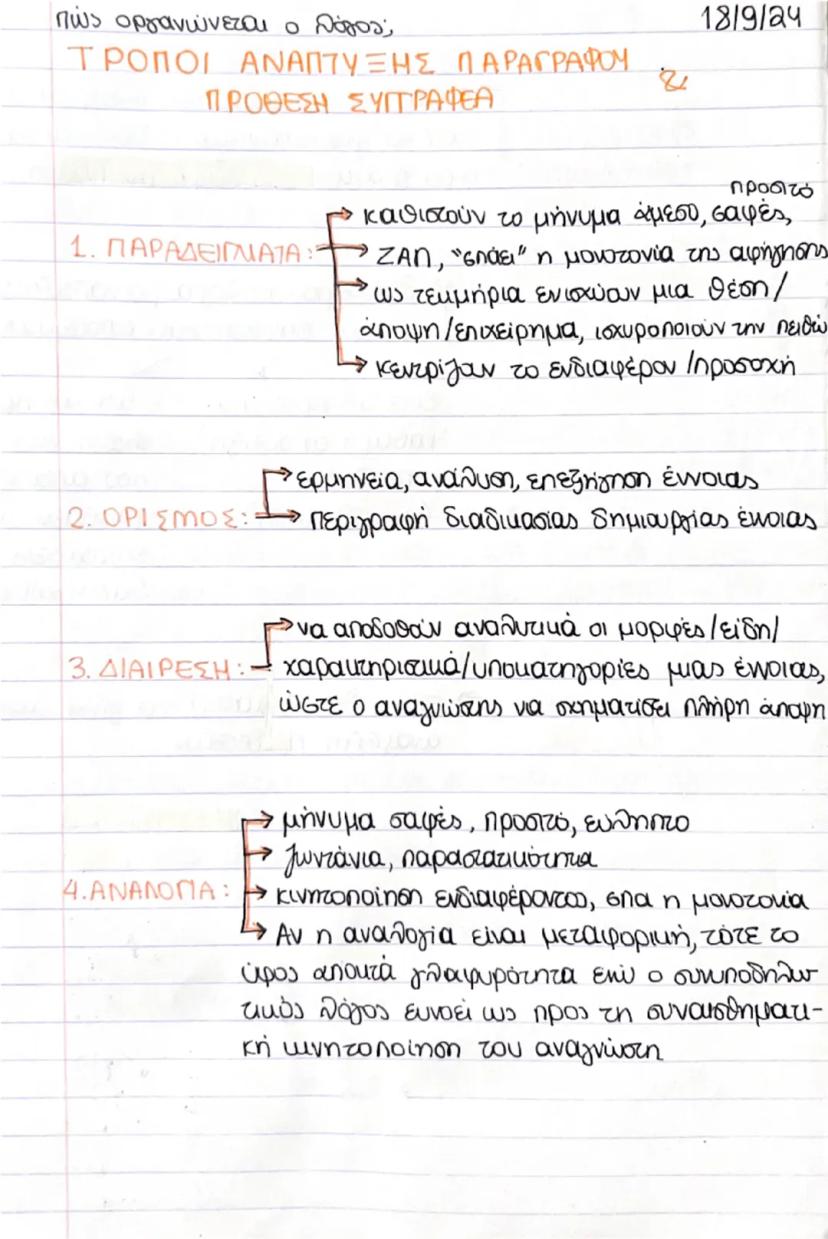 πώς οργανώνεται ο λόγος;
18/9/24
ΤΡΟΠΟΙ ΑΝΑΠΤΥΞΗΣ ΠΑΡΑΓΡΑΦΟΥ &
ΠΡΟΘΕΣΗ ΣΥΓΓΡΑΦΕΑ
προσιτό
καθιστούν το μήνυμα άμεσο, σαφές,
1. ΠΑΡΑΔΕΙΓΜΑΤΑ:
ΖΑΠ, "σπάει" η μονοτονία της αφήγησης
ως τεκμήρια ενισχύουν μια θέση/
άποψη/επιχείρημα, ισχυροποιούν την πειθώ
κεντρίζουν το ενδιαφέρον/προσοχή
ερμηνεία, ανάλυση, επεξήγηση έννοιας
2. ΟΡΙΣΜΟΣ:
περιγραφή διαδικασίας δημιουργίας έννοιας
να αποδοθούν αναλυτικά οι μορφές/είδη/
3. ΔΙΑΙΡΕΣΗ:
χαρακτηριστικά/υποκατηγορίες μιας έννοιας,
ώστε ο αναγνώστης να σχηματίσει πλήρη άποψη
μήνυμα σαφές, προσιτό, εύληπτο
ζωντάνια, παραστατικότητα
4. ΑΝΑΛΟΓΙΑ:
κινητοποίηση ενδιαφέροντος, σπα η μονοτονία
Αν η αναλογία είναι μεταφορική, τότε το
ύφος αποκτά γλαφυρότητα ενώ ο συνυποδηλω
τικός λόγος ευνοεί ως προς τη συναισθηματι-
κή κινητοποίηση του αναγνώστη